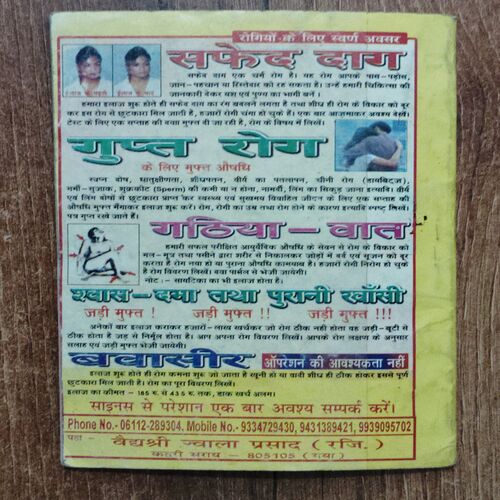 रोगियों के लिए स्वर्ण अवसर
सफेद दाग
इलाज के पहले
इलाज के बाद
सफेद दाग एक चर्म रोग है। यह रोग आपके पास-पड़ोस,
जान-पहचान या रिस्तेदार को रह सकता है। उन्हें हमारी चिकित्सा की
जानकारी देकर यश एवं पुण्य का भागी बनें।
हमारा इलाज शुरू होते ही सफेद दाग का रंग बदलने लगता है तथा शीघ्र ही रोग के विकार को दूर
कर इस रोग से छुटकारा मिल जाती है, हजारों रोगी चंगा हो चुके हैं। एक बार आजमाकर अवश्य देखें।
टेस्ट के लिए एक सप्ताह की दवा मुफ्त दी जा रही है, रोग के विषय में लिखें।
गुप्त रोग
के लिए मुफ्त औषधि
स्वप्न दोष, धातुक्षीणता, शीघ्रपतन, वीर्य का पतलापन, चीनी रोग (डायबिटिज),
गर्मी-सुजाक, शुक्रकीट (Sperm) की कमी या न होना, नामर्दी, लिंग का सिकुड़ जाना इत्यादि। वीर्य
एवं लिंग दोषों से छुटकारा प्राप्त कर स्वस्थ्य एवं सुखमय विवाहित जीवन के लिए एक सप्ताह की
औषधी मुफ्त मँगाकर इलाज शुरू करें। रोग, रोगी का उम्र तथा रोग होने के कारण इत्यादि स्पष्ट लिखें।
पत्र गुप्त रखे जाते हैं।
गठिया-वात
हमारी सफल परीक्षित आयुर्वेदिक औषधि के सेवन से रोग के विकार को
मल-मूत्र तथा पसीने द्वारा शरीर से निकालकर जोड़ों में दर्द एवं सूजन को दूर
करता है रोग नया हो या पुराना औषधि कामयाब है। हजारों रोगी निरोग हो चुके
हैं रोग विवरण लिखें। दवा पार्सल से भेजी जायेगी।
नोट :- सायटिका का भी इलाज होता है।
श्वास-दमा तथा पुरानी खाँसी
जड़ी मुफ्त ! जड़ी मुफ्त !! जड़ी मुफ्त !!!
अनेकों बार इलाज कराकर हजारों-लाख खर्चकर जो रोग ठीक नहीं होता वह जड़ी-बूटी से
ठीक होता है जड़ से निर्मूल होता है। आप अपना रोग विवरण लिखें। आपके रोग लक्षण के अनुसार
सलाह एवं जड़ी मुफ्त भेजी जायेगी।
बवासीर ऑपरेशन की आवश्यकता नहीं
इलाज शुरू होते ही रोग कमना शुरू हो जाता है खूनी हो या वादी शीघ्र ही ठीक होकर इससे पूर्ण
छुटकारा मिल जाती है। रोग का पूरा विवरण लिखें।
इलाज का कीमत - 185 रु. से 435 रु. तक, डाक खर्च अलग।
साइनस से परेशान एक बार अवश्य सम्पर्क करें।
Phone No.- 06112-289304, Mobile No.- 9334729430, 9431389421, 9939095702
पता- वैद्यश्री ज्वाला प्रसाद (रजि.)
कतरी सराय - 805105 (गया)